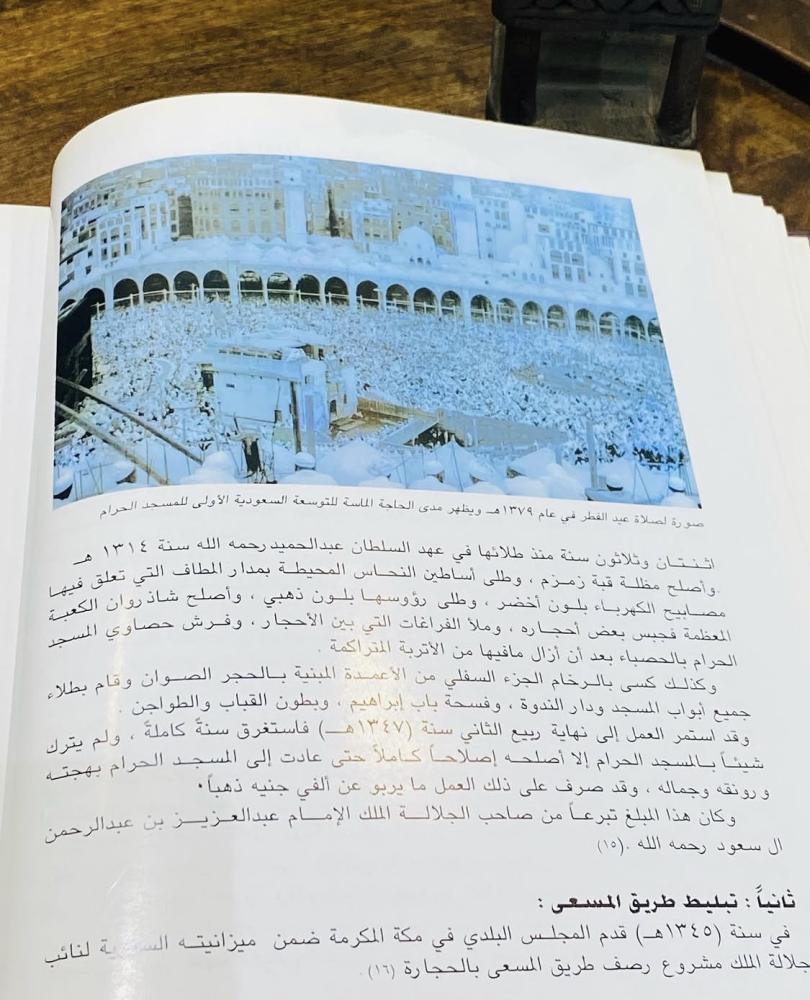 صورة لصلاة عيد الفطر في عام ١٣٧٩هـ ويظهر مدى الحاجة الماسة للتوسعة السعودية الأولى للمسجد الحرام
اثنتان وثلاثون سنة منذ طلائها في عهد السلطان عبدالحميد رحمه الله سنة ١٣١٤ هـ
.وأصلح مظلة قبة زمزم ، وطلى أساطين النحاس المحيطة بمدار المطاف التي تعلق فيها
مصابيح الكهرباء بلون أخضر ، وطلى رؤوسها بلون ذهبي ، وأصلح شاذروان الكعبة
المعظمة فجبس بعض أحجاره ، وملأ الفراغات التي بين الأحجار ، وفرش حصاوي المسجد
الحرام بالحصباء بعد أن أزال مافيها من الأتربة المتراكمة .
وكذلك كسى بالرخام الجزء السفلي من الأعمدة المبنية بالحجر الصوان وقام بطلاء
جميع أبواب المسجد ودار الندوة ، وفسحة باب إبراهيم ، وبطون القباب والطواجن .
وقد استمر العمل إلى نهاية ربيع الثاني سنة (١٣٤٧هـ) فاستغرق سنةً كاملةً ، ولم يترك
شيئاً بالمسجد الحرام إلا أصلحه إصلاحاً كاملاً حتى عادت إلى المسجد الحرام بهجته
ورونقه وجماله ، وقد صرف على ذلك العمل ما يربو عن ألفي جنيه ذهباً.
وكان هذا المبلغ تبرعاً من صاحب الجلالة الملك الإمام عبدالعزيز بن عبدالرحمن
ال سعود رحمه الله .(١٥)
ثانياً : تبليط طريق المسعى :
في سنة (١٣٤٥هـ) قدم المجلس البلدي في مكة المكرمة ضمن ميزانيته لنائب
جلالة الملك مشروع رصف طريق المسعى بالحجارة (١٦).